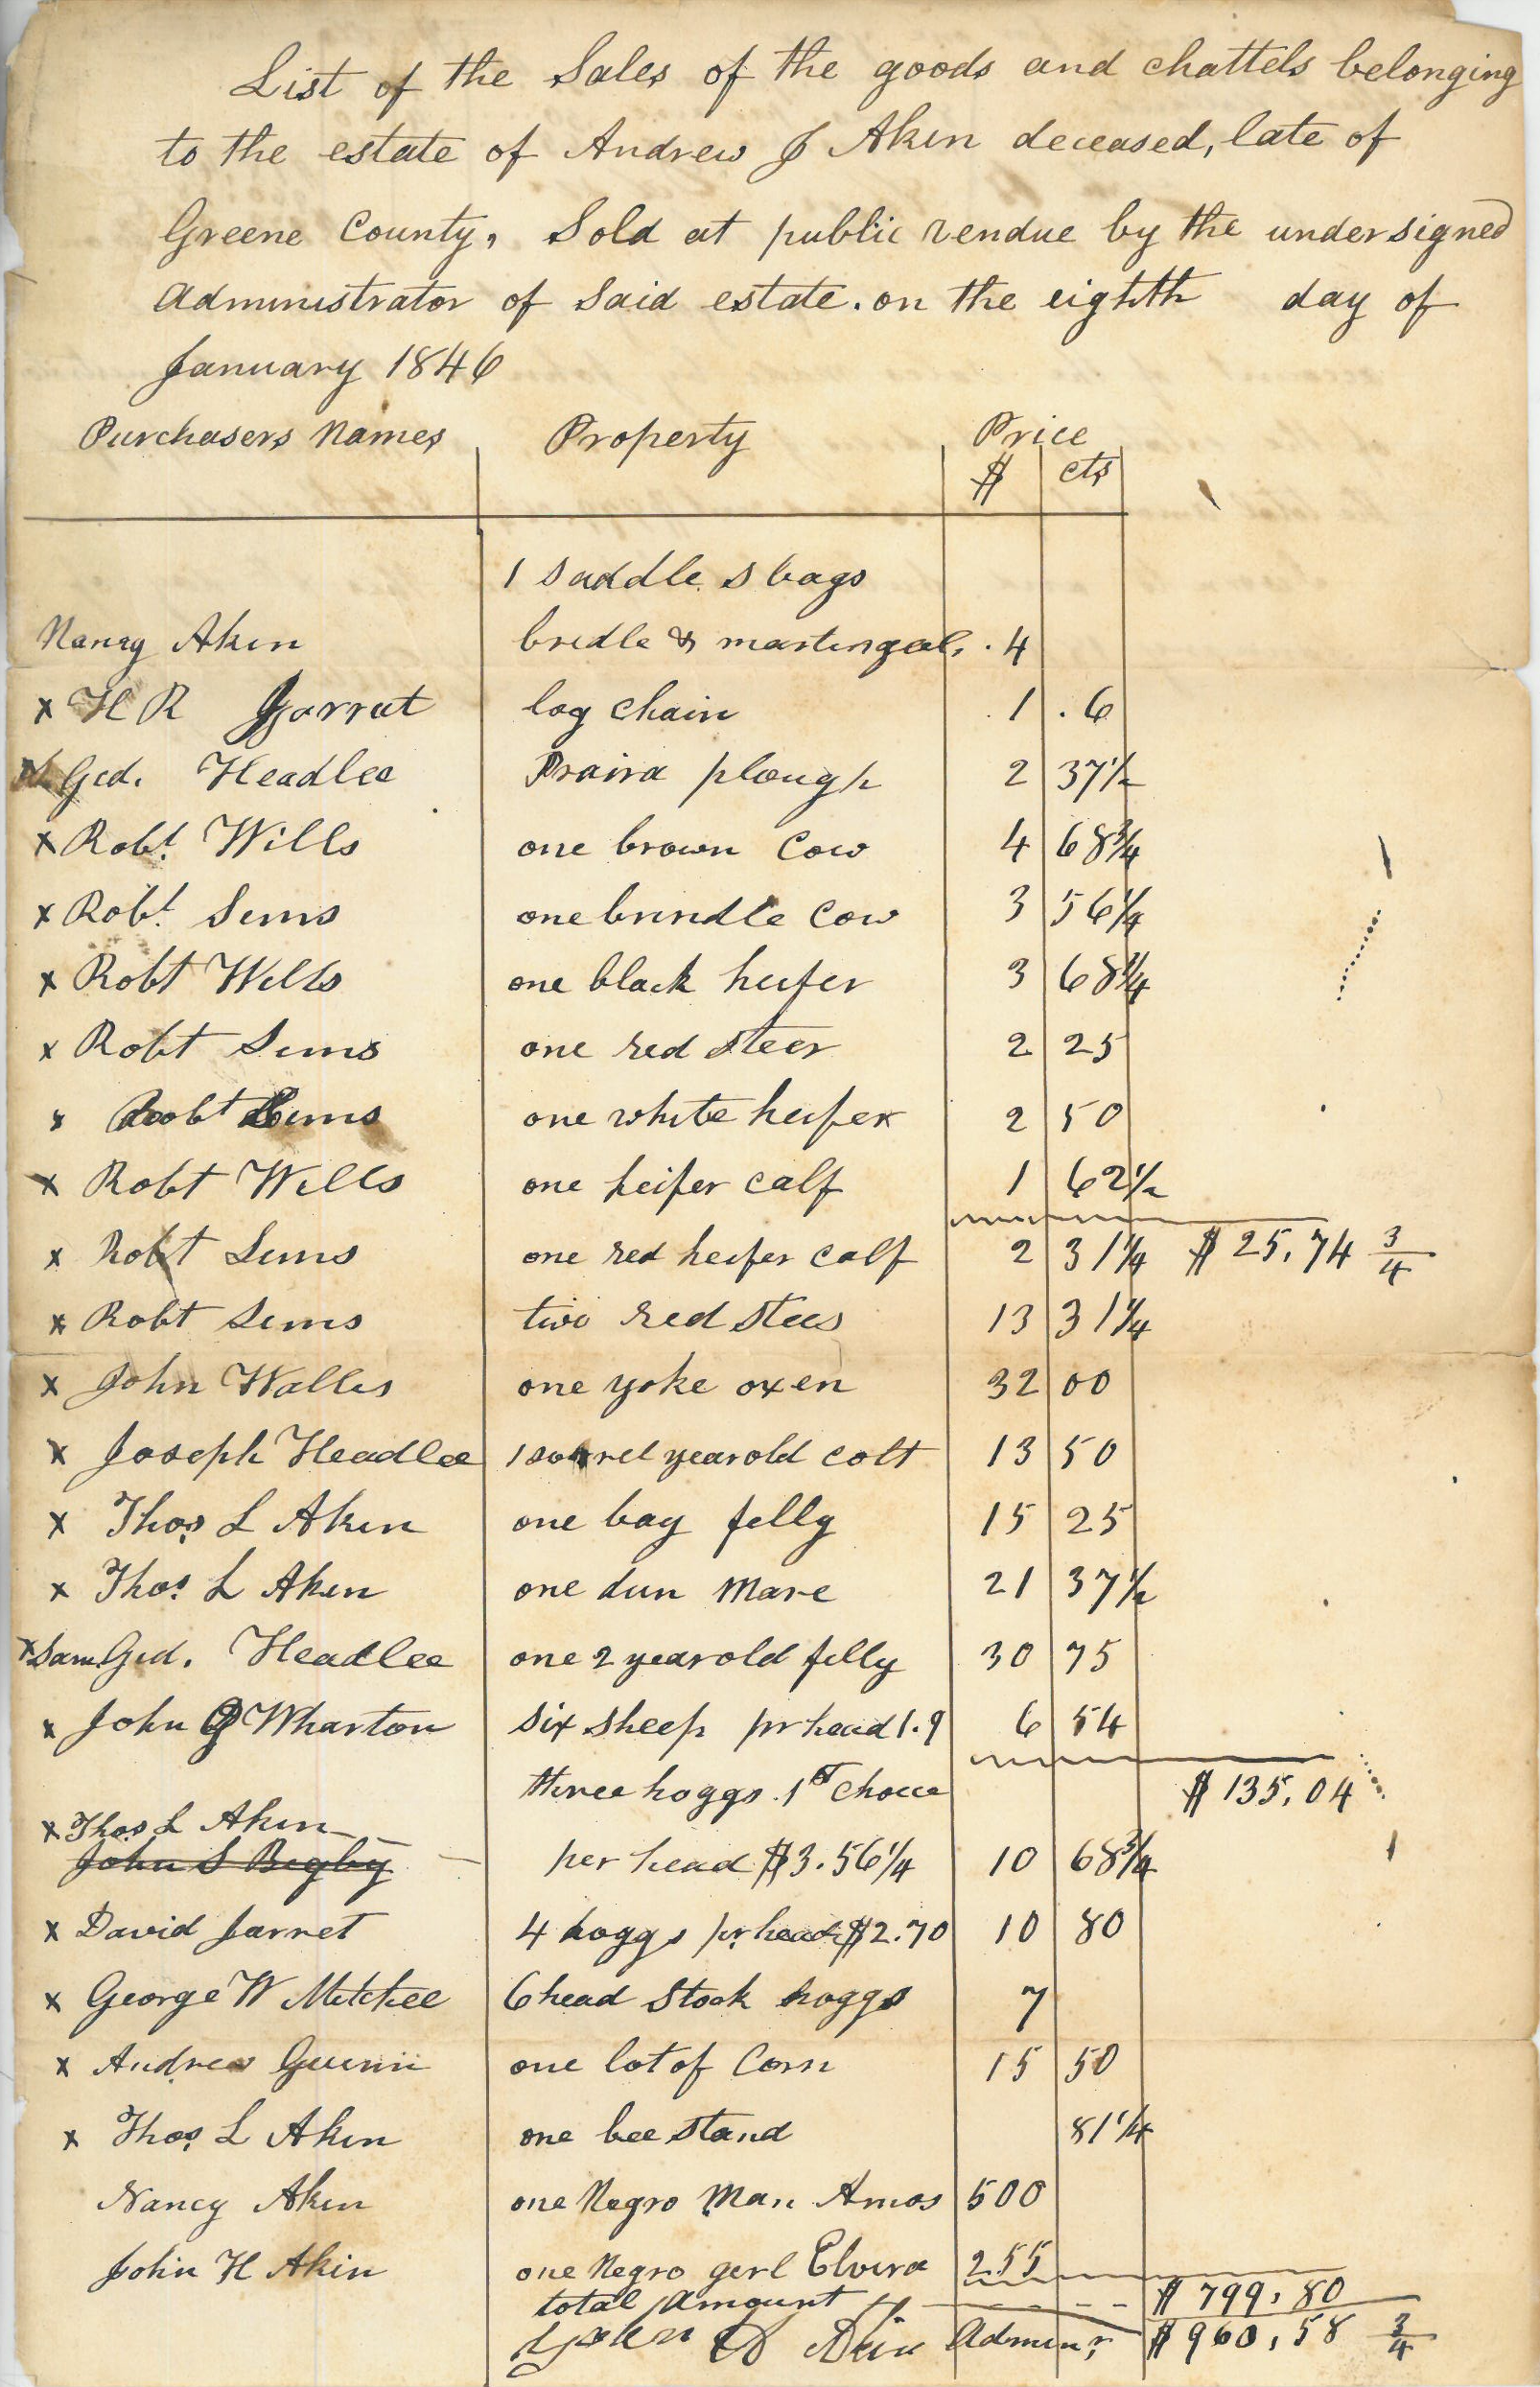 List of the Sales of the goods and chattels belonging
to the estate of Andrew J Akin deceased, late of
Greene County, Sold at public vendue by the undersigned
Administrator of Said estate. on the eighth day of
January 1846
Purchasers Names Property Price
$ cts
1 saddle s bags
Nancy Akin bridle & martingal. . 4
x H R Jarrat log chain 1 . 6
x Ged. Headlee Praira plough 2 37½
x Robt. Wills one brown Cow 4 68¾
x Robt. Sims one brindle Cow 3 56¼
x Robt Wills one black heifer 3 68¾
x Robt Sims one red steer 2 25
x Robt Sims one white heifer 2 50
x Robt Wills one heifer calf 1 62½
x Robt Sims one red heifer calf 2 31¼ $ 25,74 3/4
x Robt Sims two red stees 13 31¼
x John Wallis one yoke oxen 32 00
x Joseph Headlee 1 sorrel year old colt 13 50
x Thos. L Akin one bay filly 15 25
x Thos. L Akin one dun Mare 21 37½
x Sam Ged. Headlee one 2 year old filly 30 75
x John G Wharton six sheep pr head 1.9 6 54
three hoggs . 1st Choice $ 135,04
x Thos L Akin
John S Bigby per head $3.56¼ 10 68¾
x David Jarret 4 hoggs pr head $2.70 10 80
x George W Mitchel 6 head Stock hoggs 7
x Andrew Gwinn one lot of Corn 15 50
x Thos. L Akin one bee stand 81¼
Nancy Akin one Negro Man Amos 500
John H Akin one Negro gerl Elvira 255
total Amount $ 799,80
John H Akin Adminr, $ 960,58 3/4